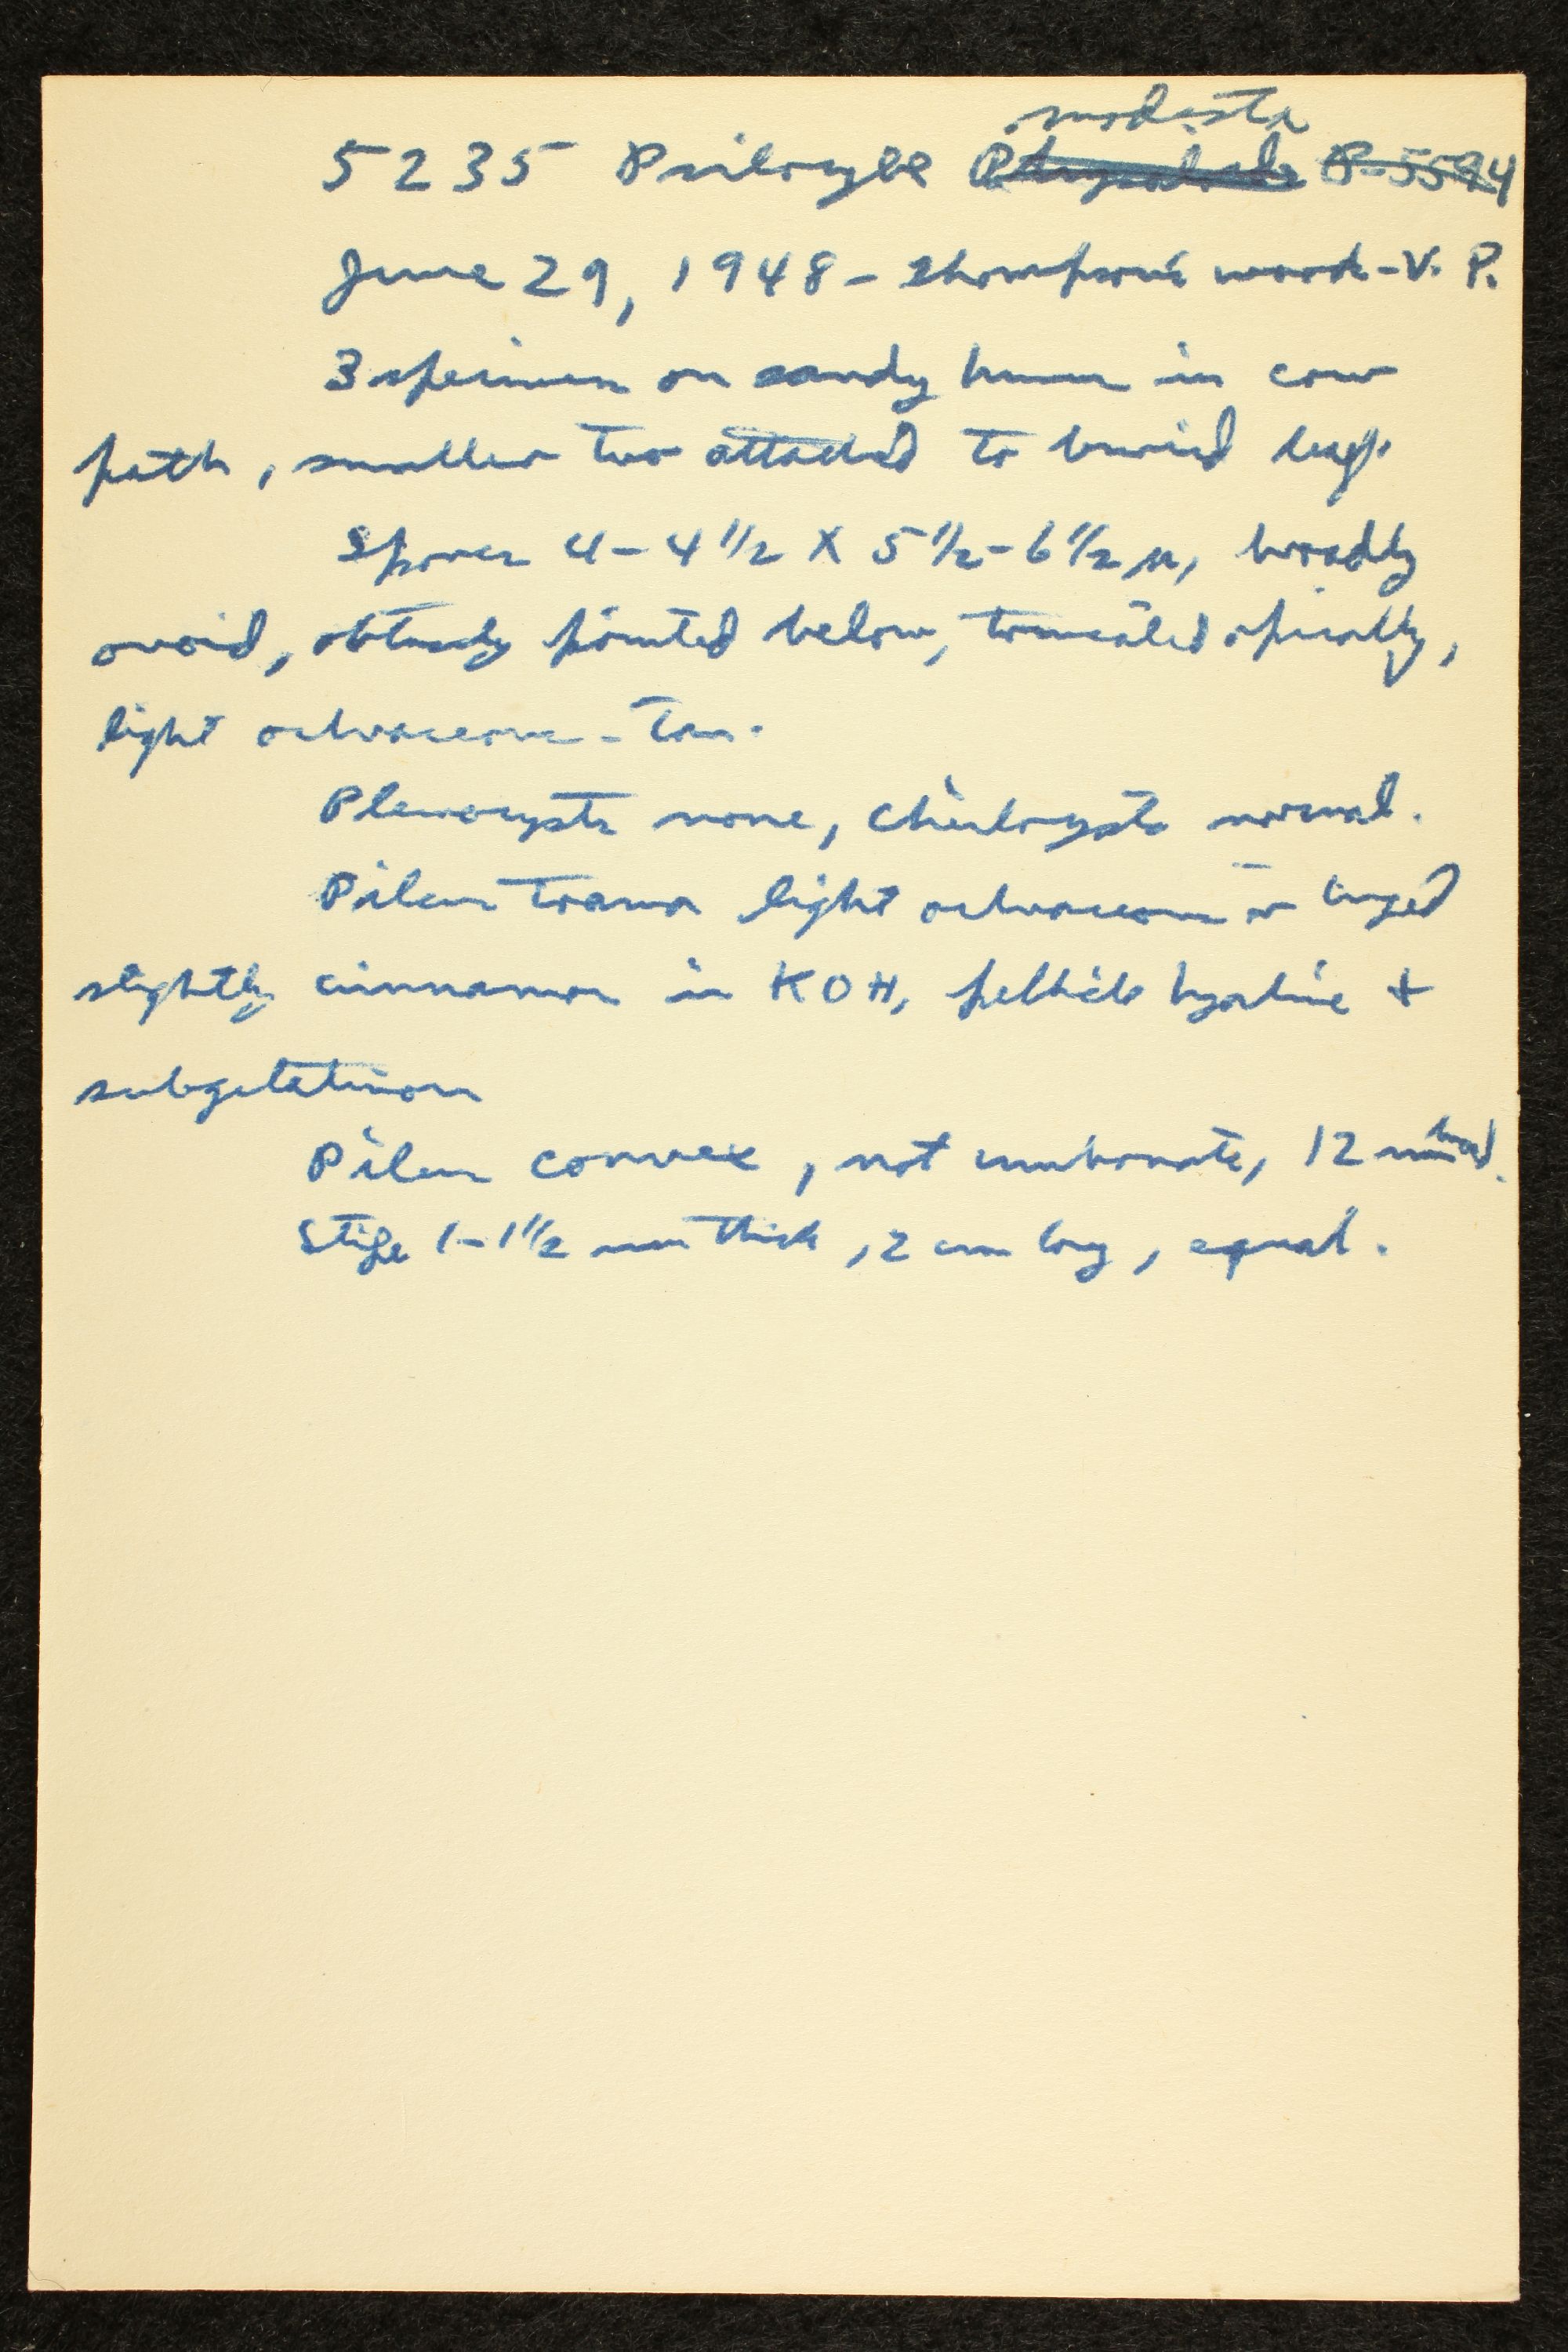 modesta
5235 Psilocybe P-5594
June 29, 1948 - Thompson's woods - V. P.
3 specimens on sandy humus in cow
path, smaller two attached to buried
Spores 4-4 1/2 X 5 1/2-6 1/2 µ, broadly
ovoid, obtusely pointed below, truncated apically,
light ochraceous-tan.
Pleurocysts none, cheilocysts normal.
Pileus trama light ochraceous or tinged
slightly cinnamon in KOH, pellicle hyaline +
subgelatinous
Pileus convex, not umbonate, 12 mm broad.
Stipe 1-1 1/2 mm thick, 2 cm long, equal.